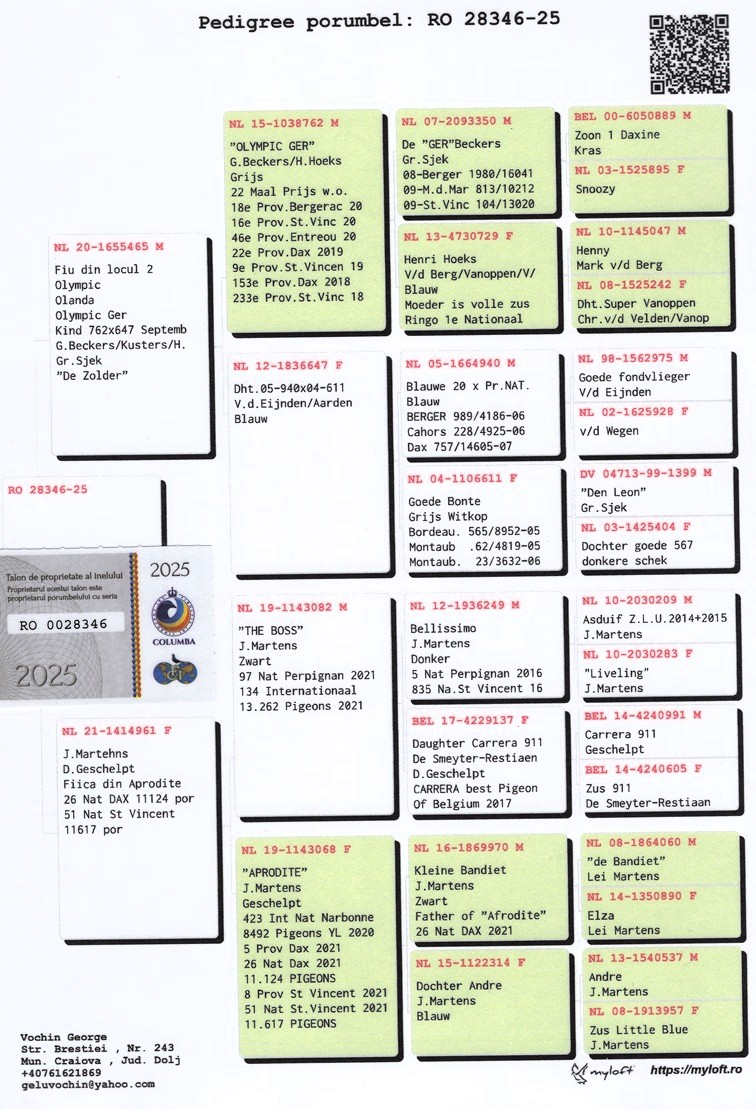 Pedigree porumbel: RO 28346-25
RO 28346-25
Talon de proprietate al inelului
Proprietarul acestui talon este
proprietarul porumbelului cu seria
RO 0028346
2025
2025
COLUMBA
NL 20-1655465 M
Fiu din locul 2
Olympic
Olanda
Olympic Ger
Kind 762x647 Septemb
G.Beckers/Kusters/H.
Gr.Sjek
"De Zolder"
NL 21-1414961 F
J.Martehns
D.Geschelpt
Fiica din Aprodite
26 Nat DAX 11124 por
51 Nat St Vincent
11617 por
NL 15-1038762 M
"OLYMPIC GER"
G.Beckers/H.Hoeks
Grijs
22 Maal Prijs w.o.
18e Prov.Bergerac 20
16e Prov.St.Vinc 20
46e Prov.Entreou 20
22e Prov.Dax 2019
9e Prov.St.Vincen 19
153e Prov.Dax 2018
233e Prov.St.Vinc 18
NL 12-1836647 F
Dht.05-940x04-611
V.d.Eijnden/Aarden
Blauw
NL 19-1143082 M
"THE BOSS"
J.Martens
Zwart
97 Nat Perpignan 2021
134 Internationaal
13.262 Pigeons 2021
NL 19-1143068 F
"APRODITE"
J.Martens
Geschelpt
423 Int Nat Narbonne
8492 Pigeons YL 2020
5 Prov Dax 2021
26 Nat Dax 2021
11.124 PIGEONS
8 Prov St Vincent 2021
51 Nat St.Vincent 2021
11.617 PIGEONS
NL 07-2093350 M
De "GER"Beckers
Gr.Sjek
08-Berger 1980/16041
09-M.d.Mar 813/10212
09-St.Vinc 104/13020
NL 13-4730729 F
Henri Hoeks
V/d Berg/Vanoppen/V/
Blauw
Moeder is volle zus
Ringo 1e Nationaal
NL 05-1664940 M
Blauwe 20 x Pr.NAT.
Blauw
BERGER 989/4186-06
Cahors 228/4925-06
Dax 757/14605-07
NL 04-1106611 F
Goede Bonte
Grijs Witkop
Bordeau. 565/8952-05
Montaub  .62/4819-05
Montaub.  23/3632-06
NL 12-1936249 M
Bellissimo
J.Martens
Donker
5 Nat Perpignan 2016
835 Na.St Vincent 16
BEL 17-4229137 F
Daughter Carrera 911
De Smeyter-Restiaen
D.Geschelpt
CARRERA best Pigeon
Of Belgium 2017
NL 16-1869970 M
Kleine Bandiet
J.Martens
Zwart
Father of "Afrodite"
26 Nat DAX 2021
NL 15-1122314 F
Dochter Andre
J.Martens
Blauw
BEL 00-6050889 M
Zoon 1 Daxine
Kras
NL 03-1525895 F
Snoozy
NL 10-1145047 M
Henny
Mark v/d Berg
NL 08-1525242 F
Dht.Super Vanoppen
Chr.v/d Velden/Vanop
NL 98-1562975 M
Goede fondvlieger
V/d Eijnden
NL 02-1625928 F
v/d Wegen
DV 04713-99-1399 M
"Den Leon"
Gr.Sjek
NL 03-1425404 F
Dochter goede 567
donkere schek
NL 10-2030209 M
Asduif Z.L.U.2014+2015
J.Martens
NL 10-2030283 F
"Liveling"
J.Martens
BEL 14-4240991 M
Carrera 911
Geschelpt
BEL 14-4240605 F
Zus 911
De Smeyter-Restiaan
NL 08-1864060 M
"de Bandiet"
Lei Martens
NL 14-1350890 F
Elza
Lei Martens
NL 13-1540537 M
Andre
J.Martens
NL 08-1913957 F
Zus Little Blue
J.Martens
Vochin George
Str. Brestiei , Nr. 243
Mun. Craiova , Jud. Dolj
+40761621869
geluvochin@yahoo.com
myloft https://myloft.ro